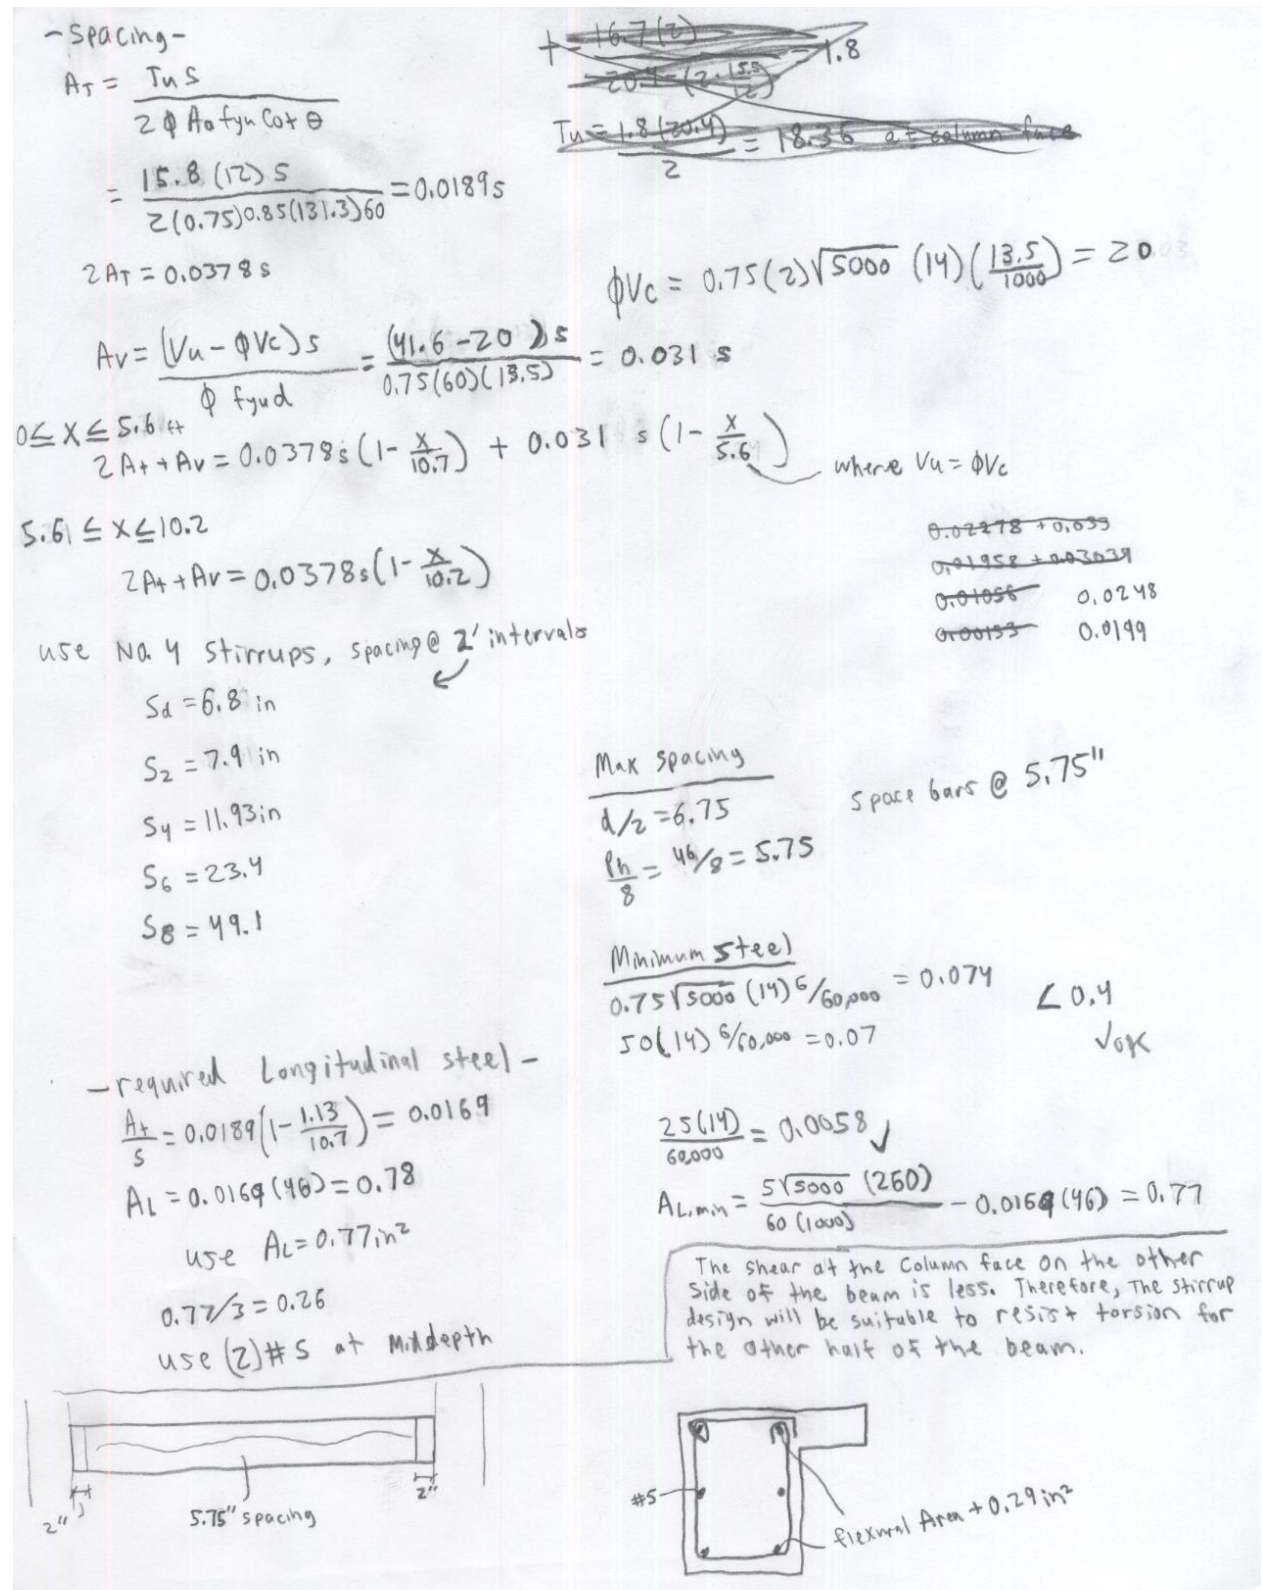 - Spacing -
A_T = Tu S / 2 φ Ao fyu Cot θ
= 15.8 (12) S / 2(0.75)0.85(131.3)60 = 0.0189s
2A_T = 0.0378 s
t = 16.7(2) / 20.4 - (2 · 15.5/12) = 1.8
Tu = 1.8 (20.4) / 2 = 18.36 at column face
φVc = 0.75(2)√5000 (14)(13.5/1000) = 20
Av = (Vu - φVc) s / φ fyud = (41.6 - 20) s / 0.75(60)(13.5) = 0.031 s
0 ≤ X ≤ 5.6 ft
2At + Av = 0.0378s (1 - x/10.7) + 0.031 s (1 - x/5.6) where Vu = φVc
5.61 ≤ X ≤ 10.2
2At + Av = 0.0378s (1 - x/10.2)
0.02278 + 0.033
0.01958 + 0.03039
0.01058 0.0248
0.00153 0.0199
use No. 4 Stirrups, spacing @ 2' intervals
Sd = 6.8 in
S2 = 7.9 in
S4 = 11.93 in
S6 = 23.4
S8 = 49.1
Max spacing
d/2 = 6.75
Ph/8 = 46/8 = 5.75
Space bars @ 5.75"
Minimum Steel
0.75√5000 (14) 6/60,000 = 0.074
50(14) 6/60,000 = 0.07
< 0.4
✓OK
- required Longitudinal steel -
At/s = 0.0189(1 - 1.13/10.7) = 0.0169
AL = 0.0169 (46) = 0.78
use AL = 0.77in²
0.77/3 = 0.26
use (2) #5 at Middepth
25(14)/60,000 = 0.0058 ✓
AL,min = 5√5000 (260) / 60 (1000) - 0.0169 (46) = 0.77
The shear at the Column face on the other
Side of the beam is less. Therefore, The Stirrup
design will be suitable to resist torsion for
the other half of the beam.
2"
5.75" spacing
2"
#5
flexural Area + 0.29 in²